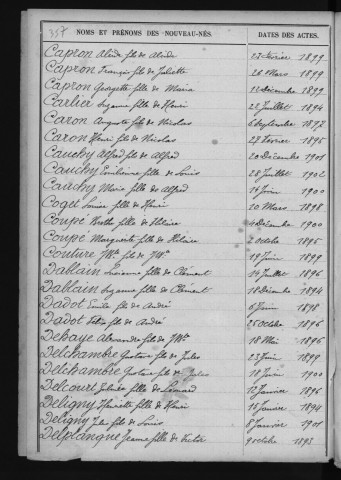 357
NOMS ET PRÉNOMS DES NOUVEAU-NÉS. DATES DES ACTES.
Capron Alcide fils de Alcide 23 Février 1899
Capron François fils de Juliette 26 Mars 1899
Capron Georgette fille de Maria 22 décembre 1899
Carlier Suzanne fille de Henri 22 Juillet 1894
Caron Auguste fils de Nicolas 6 Septembre 1893
Caron Henri fils de Nicolas 27 Février 1895
Cauchy Alfred fils de Alfred 20 Décembre 1901
Cauchy Emilienne fille de Louis 28 Juillet 1902
Cauchy Maria fille de Alfred 14 Juin 1900
Coget Louise fille de Henri 20 Mars 1898
Coupé Berthe fille de Hilaire 4 Décembre 1900
Coupé Marguerite fille de Hilaire 2 octobre 1895
Couture fils de 19 Juin 1899
Dablain Lucienne fille de Clément 14 Juillet 1896
Dablain Suzanne fille de Clément 18 Décembre 1894
Dadot Emile fils de André 6 Juin 1898
Dadot Félix fils de André 25 Octobre 1896
Dehaye Alexandre fils de 18 Mai 1896
Delchambre Gustave fils de Jules 23 Juin 1899
Delchambre Gustave fils de Jules 18 Juin 1900
Delcourt fille de Léonard 12 Janvier 1896
Deligny Henriette fille de Henri 15 Janvier 1894
Deligny Jules fils de Louis 8 Janvier 1901
Delplanque Jeanne fille de Victor 9 octobre 1893